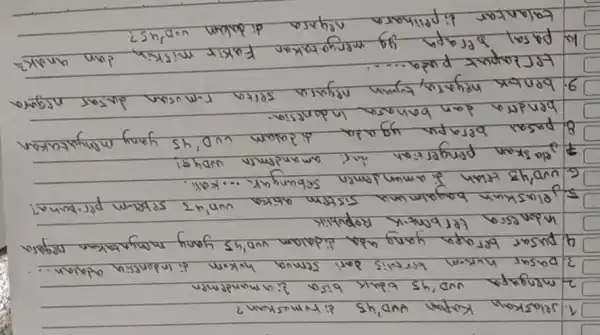 1. Jelaskan kapan UUD'45 dirumuskan?
2. mengapa UUD'45 tidak bisa diamandemen
3. Dasar hukum tertulis dari semua hukum di indonesia adalah...
4. pasal berapa yang ada didalam UUD'45 yang menyatakan negara
indonesia berbentuk Republik
5. jelaskan bagaimana sistem UUD'45 sebelum perubahan?
6. UUD'45 telah diamandemen sebanyak .... kali.
7. jelaskan pengertian dari amandemen UUD45!
8. pasal berapa yg ada didalam UUD'45 yang menyatakan
bendera dan bahasa indonesia.
9. bentuk negara, tujuan negara serta rumusan dasar negara
terdapat pada.....
10. pasal berapa yg menyatakan fakir miskin dan anak2
terlantar dipelihara negara didalam UUD'45?